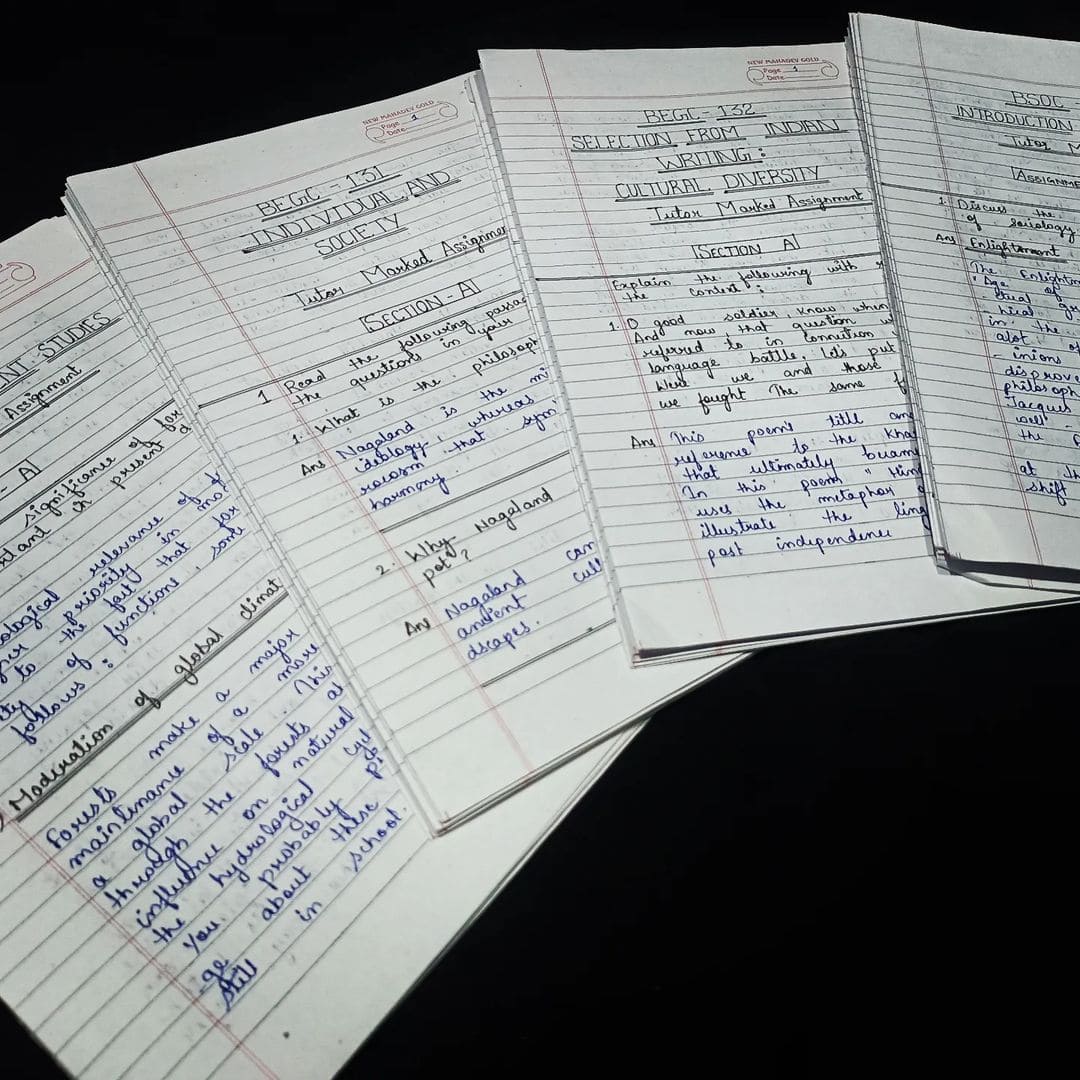 ENT STUDIES
Assignment
- A]
significance of for
tant in present d
ological relevance of f
priority in mo
ity to the fact that
follows : functions, some for
Moderation of global climat
Forests make a major
maintenance of a more
a global scale. This
through the forests at
influence on natural
the hydrological cyc
you probably
ge about these
still in school.
NEW MAHADEV GOLD
Page 1
Date
BEGC - 131
INDIVIDUAL AND
SOCIETY
Tutor Marked Assignmen
[SECTION - A]
1 Read the following passag
the questions in your
1. What is the philosoph
Ans Nagaland is the mi
ideology, whereas
racism that sym
harmony.
2. Why Nagaland
pot?
Ans Nagaland can
ancient cul
dscapes.
NEW MAHADEV GOLD
Page 1
Date
BEGC - 132
SELECTION FROM INDIAN
WRITING :
CULTURAL DIVERSITY
Tutor Marked Assignment
[SECTION A]
Explain the following with
the context :
1. O good soldier know when
And now that question
referred to in connection
language battle, let's put
Were we and those
we fought The same f
Ans This poem's title and
reference to the Kha
that ultimately
In this poem " Hin
uses the metaphor
illustrate the ling
past independence
BSOC -
INTRODUCTION
Tutor M
[ASSIGNME
1. Discuss the
of sociology
Ans Enlightenment
The Enlightm
"Age of
- tual
- hical gr
in the
alot of
- inions
disprove
philosoph
Jacques
well -
the p
at th
shift